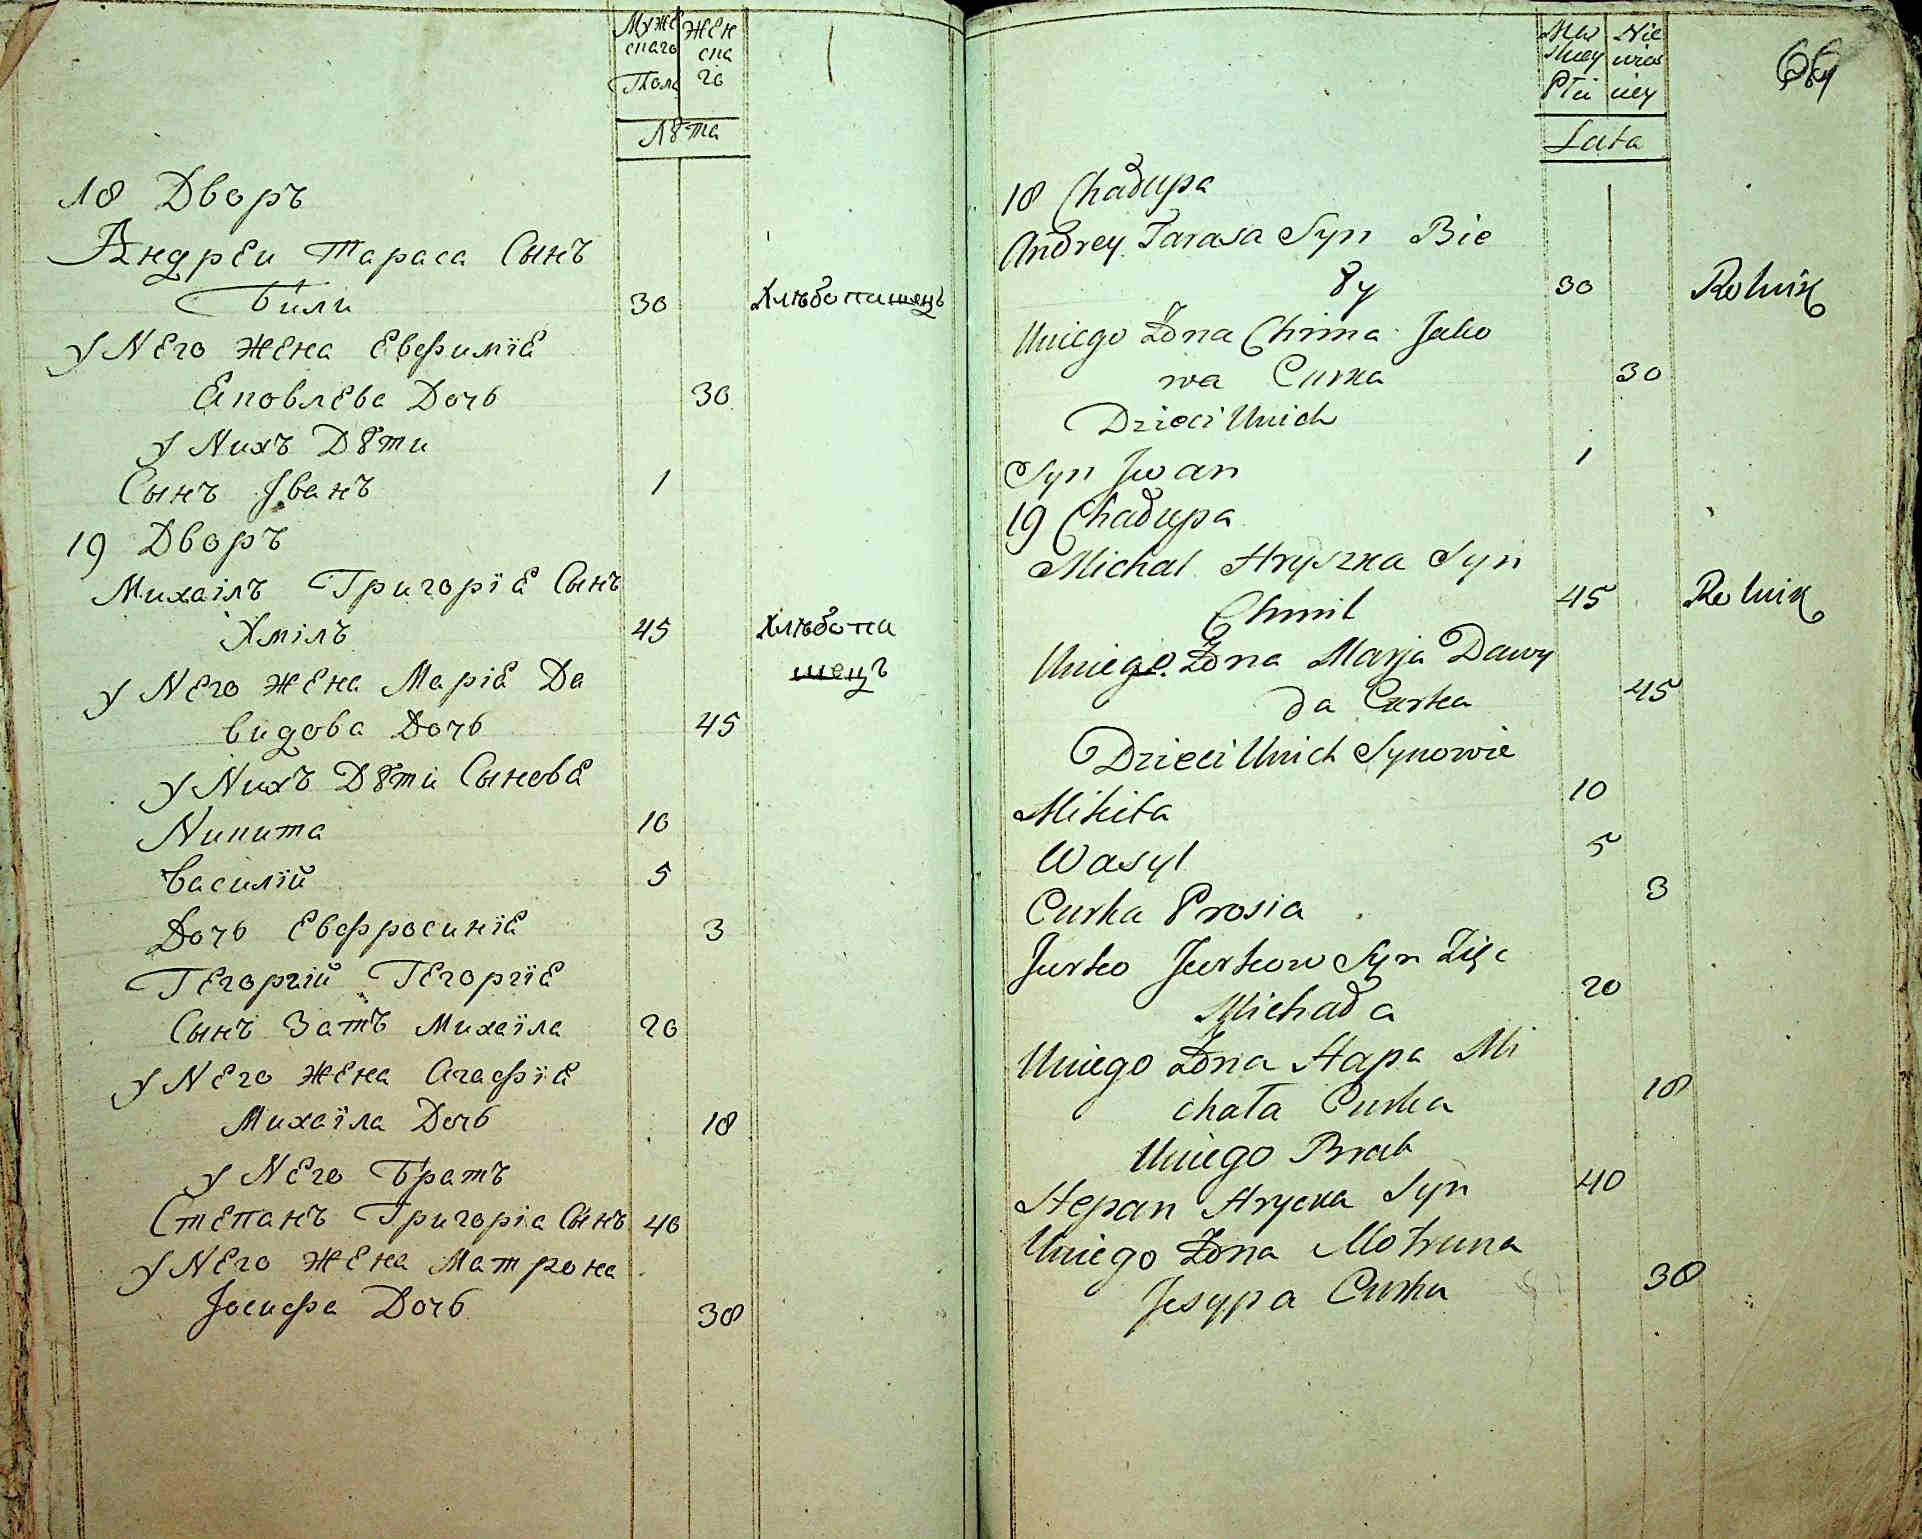 Муже Жен
скаго ска
Пола го
Лѣта
18 Дворъ
Андреи Тараса Сынъ
Били 30 Хлѣбопашецъ
У Него Жена Евфиміа
Яковлева Дочь 30
У Нихъ Дѣти
Сынъ Іванъ 1
19 Дворъ
Михаілъ Григоріа Сынъ
Хмілъ 45 Хлѣбопа
шецъ
У Него Жена Маріа Да
видова Дочь 45
У Нихъ Дѣти Сынова
Никита 10
Василій 5
Дочь Евфросиніа 3
Гегоргій Гегоргіа
Сынъ Затъ Михаіла 20
У Него Жена Агафіа
Михаіла Дочь 18
У Него Братъ
Степанъ Григоріа Сынъ 40
У Него Жена Матрона
Іосифа Дочь 38
Płci
Lata
18 Chałupa
Andrey Tarasa Syn Bie
ły 30 Rolnik
Uniego Żona Chima Jako
wa Curka 30
Dzieci Unich
Syn Jwan 1
19 Chałupa
Michal Hryszka Syn
Chmil 45 Rolnik
Uniego Żona Marja Dawy
da Curka 45
Dzieci Unich Synowie
Mikita 10
Wasyl 5
Curka Prosia 3
Jurko Jurkow Syn Zięc
Michała 20
Uniego Żona Hapa Mi
chała Curka 18
Uniego Brat
Stepan Hrycka Syn 40
Uniego Żona Motruna
Jesypa Curka 38